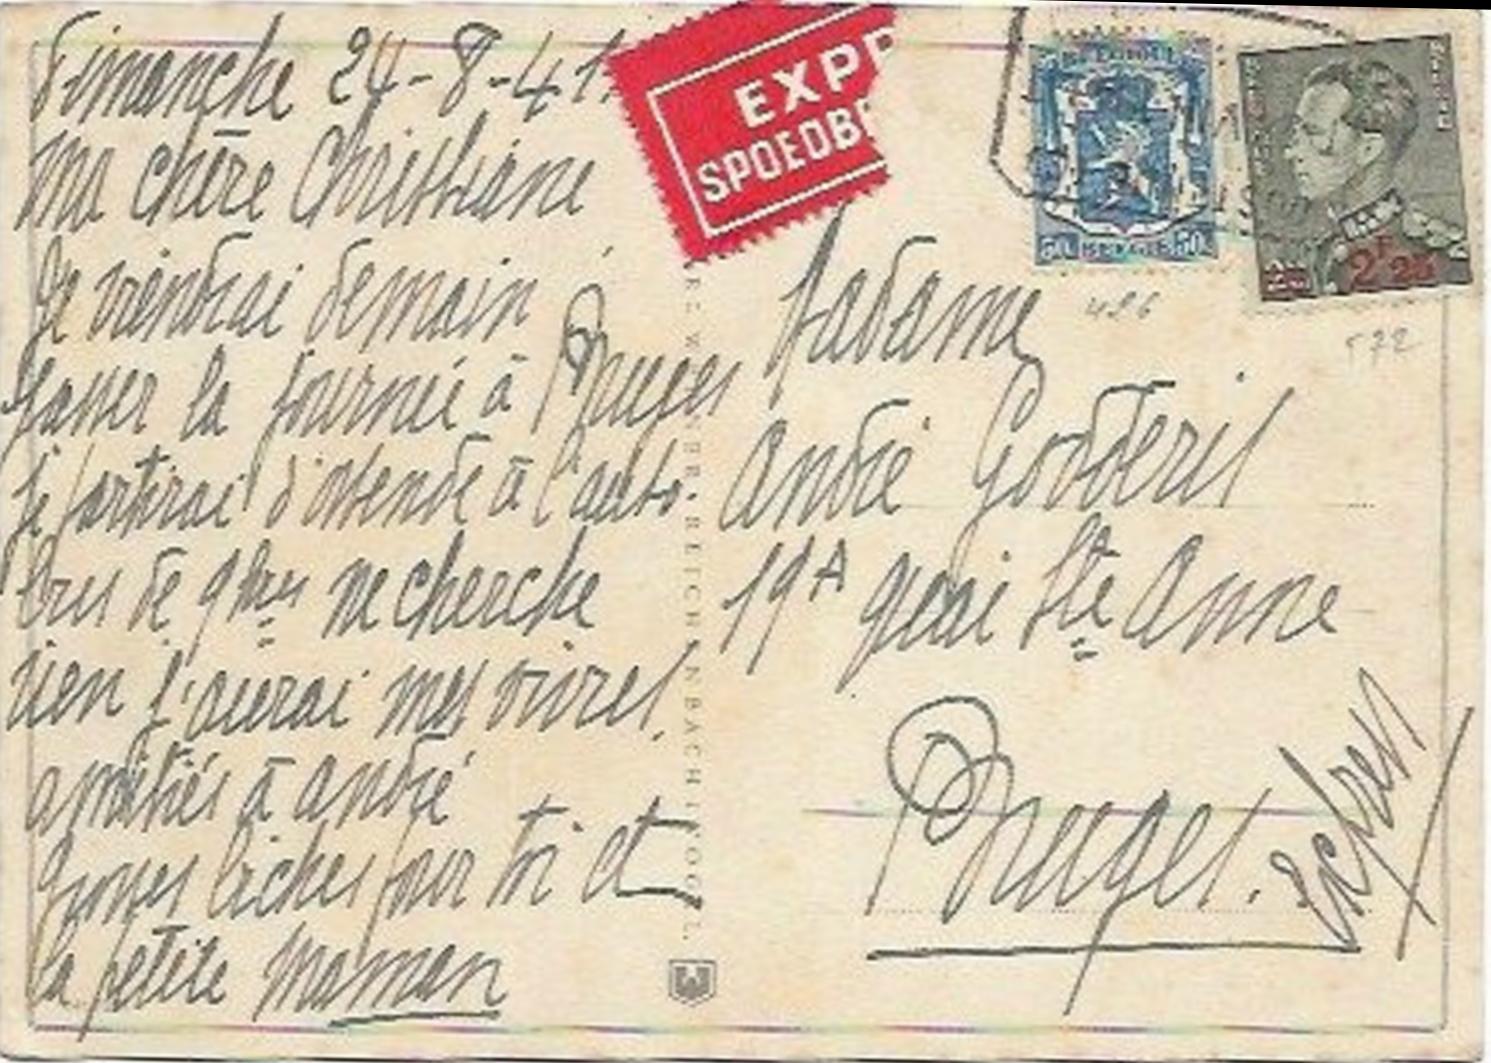 Dimanche 24-8-41.
Ma chère Christiane
Je viendrai demain
passer la journée à Bruges
je partirai d'ostende à l'auto-
bus de 9hrs ne cherche
rien j'aurai mes vivres.
amitiés à andré
Grosses liches pour toi et
la petite maman
EXPR
SPOEDBE
BELGIQUE
50c BELGIE 50c
2F 25
426
572
Madame
André Godderis
19A quai Ste Anne
Bruges.
Expres